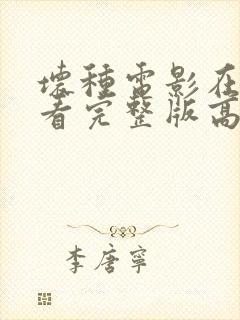 壞種電影在
看完整版高
李唐寧